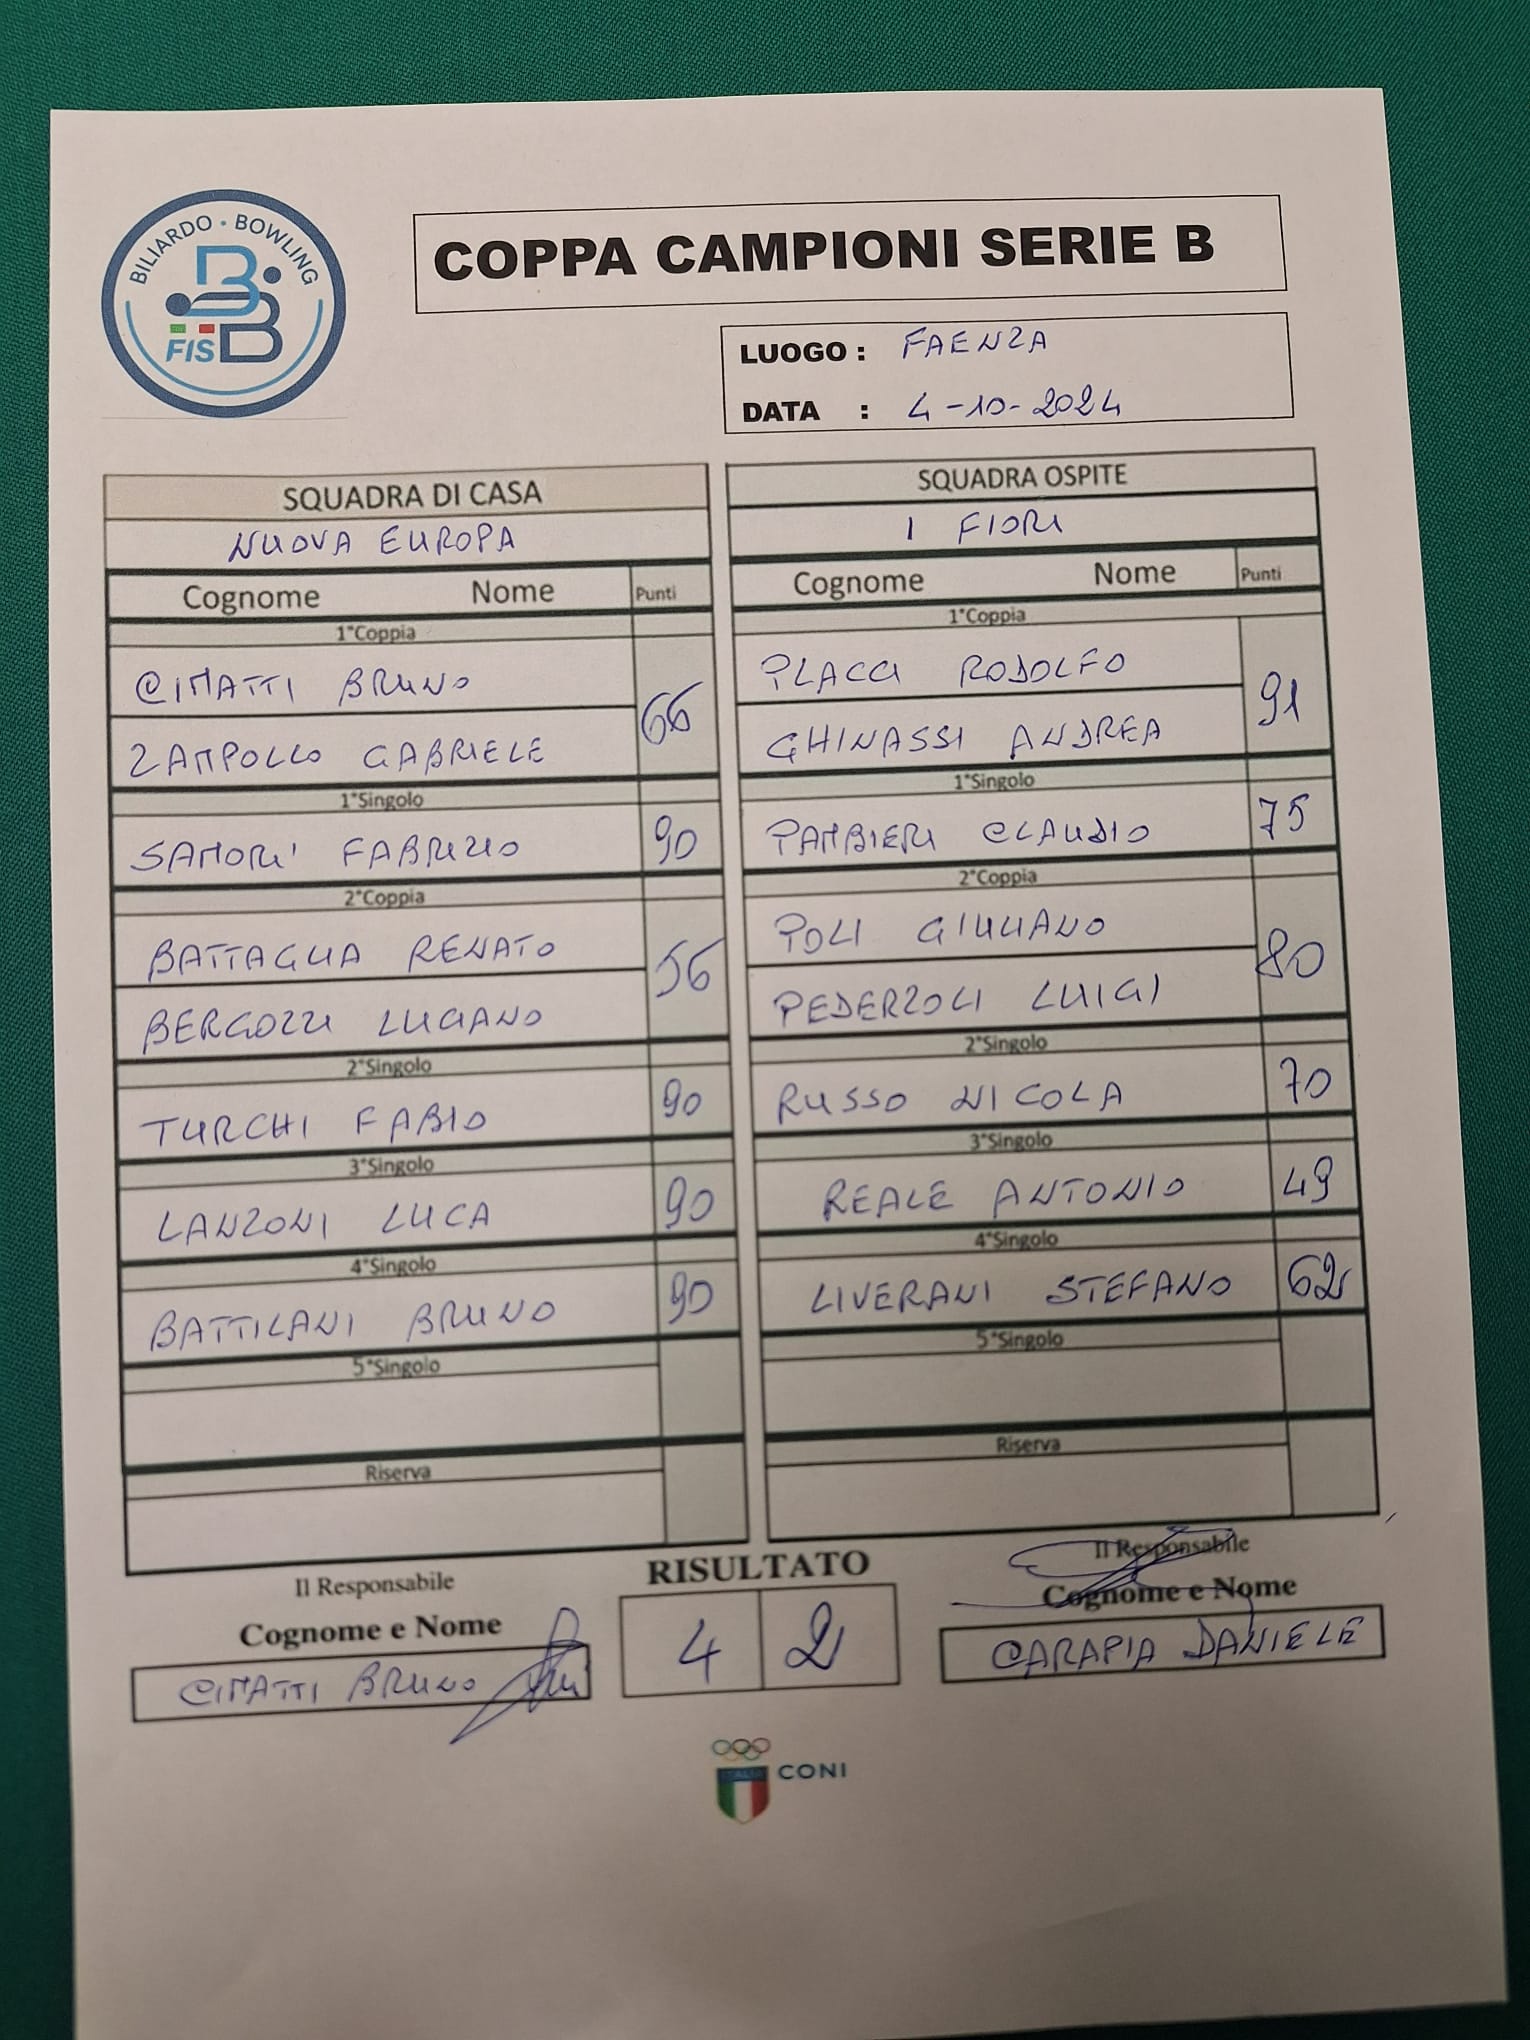 BILIARDO · BOWLING
FISBB
COPPA CAMPIONI SERIE B
LUOGO : FAENZA
DATA : 4-10-2024
SQUADRA DI CASA
NUOVA EUROPA
Cognome Nome Punti
1°Coppia
CIMATTI BRUNO
66
ZAMPOLLO GABRIELE
1°Singolo
SAMORI' FABRIZIO 90
2°Coppia
BATTAGLIA RENATO
56
BERGOZZI LUCIANO
2°Singolo
TURCHI FABIO 90
3°Singolo
LANZONI LUCA 90
4°Singolo
BATTILANI BRUNO 90
5°Singolo
Riserva
SQUADRA OSPITE
I FIORI
Cognome Nome Punti
1°Coppia
PLACCI RODOLFO
91
GHINASSI ANDREA
1°Singolo
PAMBIERI CLAUDIO 75
2°Coppia
POLI GIULIANO
80
PEDERZOLI LUIGI
2°Singolo
RUSSO NICOLA 70
3°Singolo
REALE ANTONIO 49
4°Singolo
LIVERANI STEFANO 62
5°Singolo
Riserva
Il Responsabile
Cognome e Nome
CIMATTI BRUNO
RISULTATO
4 2
Il Responsabile
Cognome e Nome
CARAPIA DANIELE
ITALIA
CONI